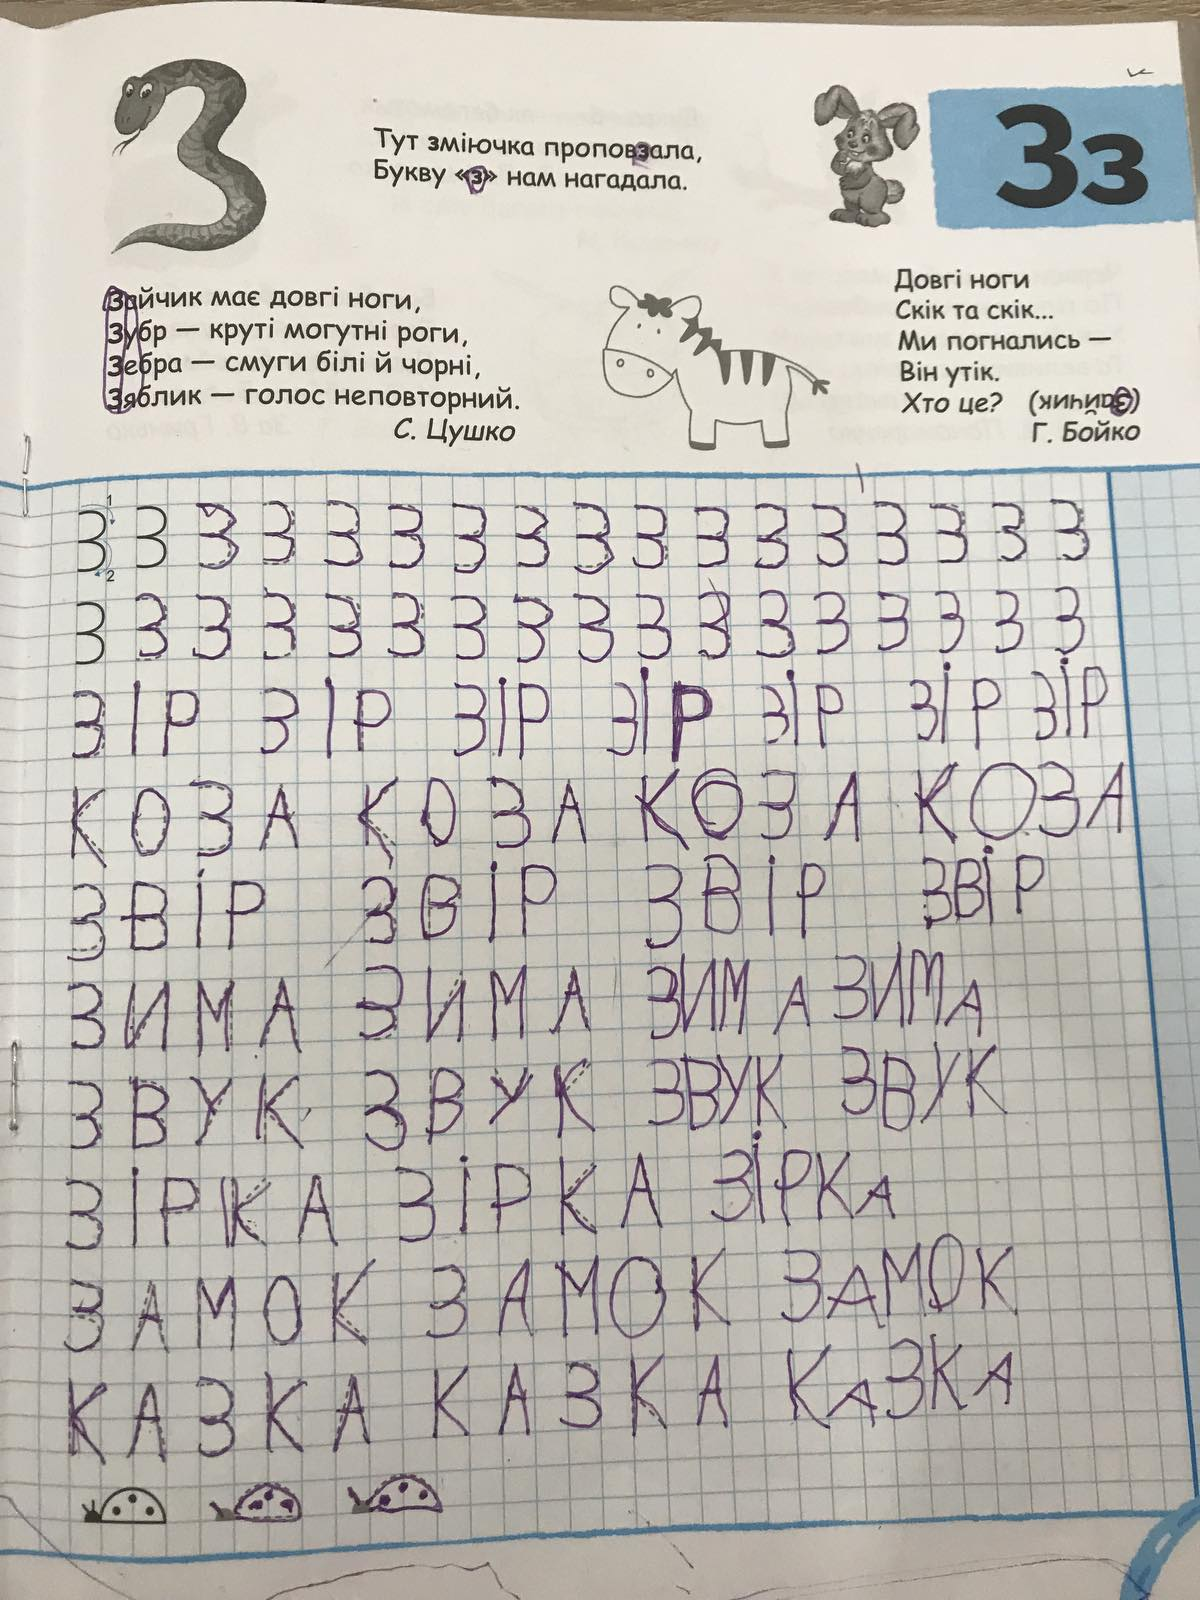 Зз
Тут зміючка проповзала,
Букву «з» нам нагадала.
Зайчик має довгі ноги,
Зубр — круті могутні роги,
Зебра — смуги білі й чорні,
Зяблик — голос неповторний.
С. Цушко
Довгі ноги
Скік та скік...
Ми погнались —
Він утік.
Хто це? (Зайчик)
Г. Бойко
1
2
З З З З З З З З З З З З З З З З З
З З З З З З З З З З З З З З З З З
ЗІР ЗІР ЗІР ЗІР ЗІР ЗІР ЗІР
КОЗА КОЗА КОЗА КОЗА
ЗВІР ЗВІР ЗВІР ЗВІР
ЗИМА ЗИМА ЗИМА ЗИМА
ЗВУК ЗВУК ЗВУК ЗВУК
ЗІРКА ЗІРКА ЗІРКА
ЗАМОК ЗАМОК ЗАМОК
КАЗКА КАЗКА КАЗКА